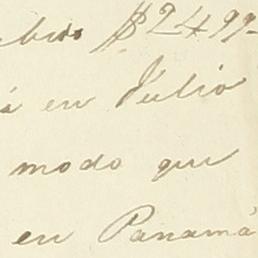 $2499-
á en Julio
modo que
en Panamá